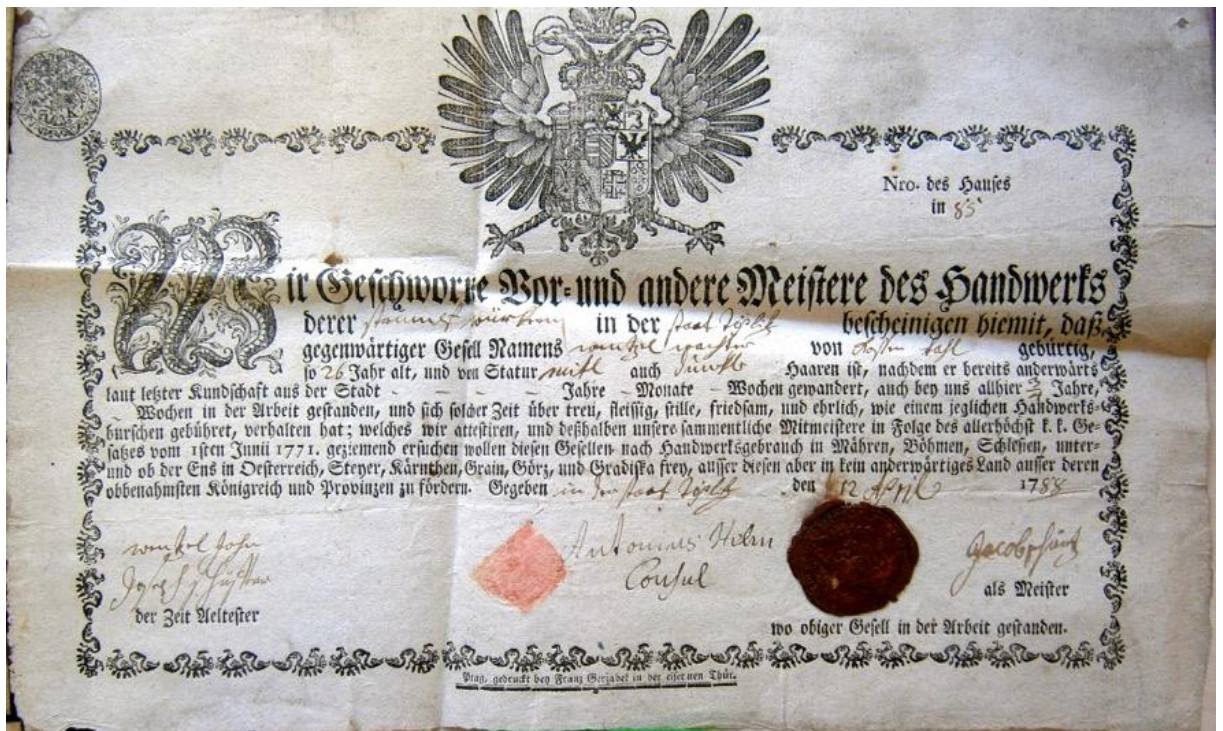 Nro. des Hauses
in 85
Wir Geschworne Vor- und andere Meistere des Handwerks
derer in der Staat Töplitz bescheinigen hiemit, daß
gegenwärtiger Gesell Namens wentzel von gebürtig,
so 26 Jahr alt, und von Statur mitl auch Haaren ist, nachdem er bereits anderwärts
laut letzter Kundschaft aus der Stadt - - - Jahre - Monate - Wochen gewandert, auch bey uns allhier Jahre,
- Wochen in der Arbeit gestanden, und sich solcher Zeit über treu, fleissig, stille, friedsam, und ehrlich, wie einem jeglichen Handwerks-
burschen gebühret, verhalten hat; welches wir attestiren, und deßhalben unsere sammentliche Mitmeistere in Folge des allerhöchst k. k. Ge-
satzes vom 1sten Junii 1771. geziemend ersuchen wollen diesen Gesellen nach Handwerksgebrauch in Mähren, Böhmen, Schlesien, unter-
und ob der Ens in Oesterreich, Steyer, Kärnthen, Crain, Görz, und Gradiska frey, ausser diesen aber in kein anderwärtiges Land ausser deren
obbenahmsten Königreich und Provinzen zu fördern. Gegeben in der Staat Töplitz den 12 April 1788
wentzel John Antonius Consul
Joseph als Meister
der Zeit Aeltester
wo obiger Gesell in der Arbeit gestanden.
Prag, gedruckt bey Franz Gerzabek in der eisernen Thür.